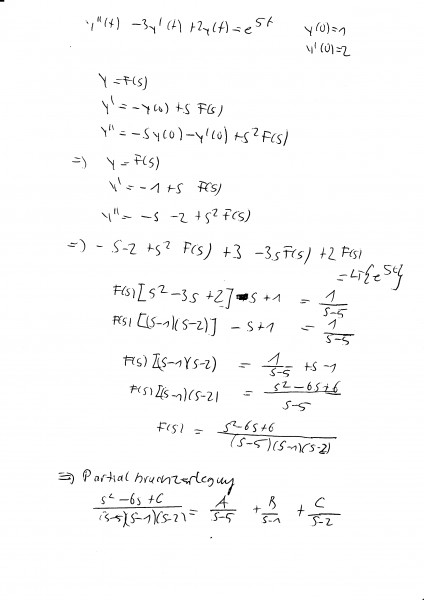 y''(t) - 3y'(t) + 2y(t) = e^{5t} y(0)=1
y'(0)=2
y = F(s)
y' = -y(0) + s F(s)
y'' = -s y(0) - y'(0) + s^2 F(s)
=) y = F(s)
y' = -1 + s F(s)
y'' = -s -2 + s^2 F(s)
=) - s-2 + s^2 F(s) + 3 - 3s F(s) + 2 F(s)
= LT{e^{5t}}
F(s) [s^2 - 3s + 2] - s + 1 = 1/(s-5)
F(s) [(s-1)(s-2)] - s + 1 = 1/(s-5)
F(s) [(s-1)(s-2) = 1/(s-5) + s - 1
F(s) [(s-1)(s-2) = (s^2 - 6s + 6)/(s-5)
F(s) = (s^2 - 6s + 6)/((s-5)(s-1)(s-2))
=) Partialbruchzerlegung
(s^2 - 6s + 6)/((s-5)(s-1)(s-2)) = A/(s-5) + B/(s-1) + C/(s-2)